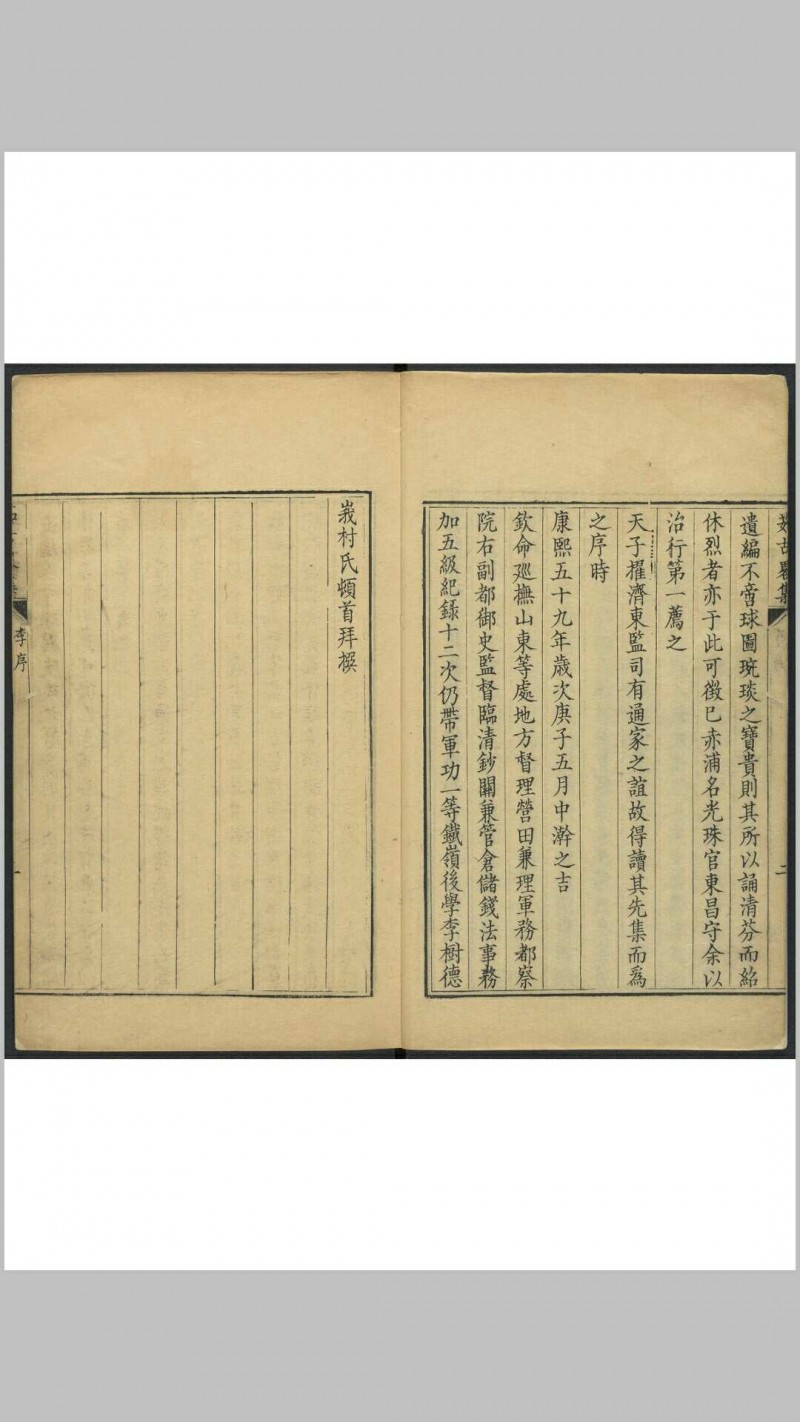 遺編不啻球圖琬琰之寶貴則其所以誦清芬而紹
休烈者亦于此可徵已赤浦名光珠官東昌守余以
治行第一薦之
天子擢濟東監司有通家之誼故得讀其先集而爲
之序時
康熙五十九年歲次庚子五月中澣之吉
欽命巡撫山東等處地方督理營田兼理軍務都察
院右副都御史監督臨清鈔關兼管倉儲錢法事務
加五級紀錄十二次仍帶軍功一等鐵嶺後學李樹德
二
峩村氏頓首拜撰
李序